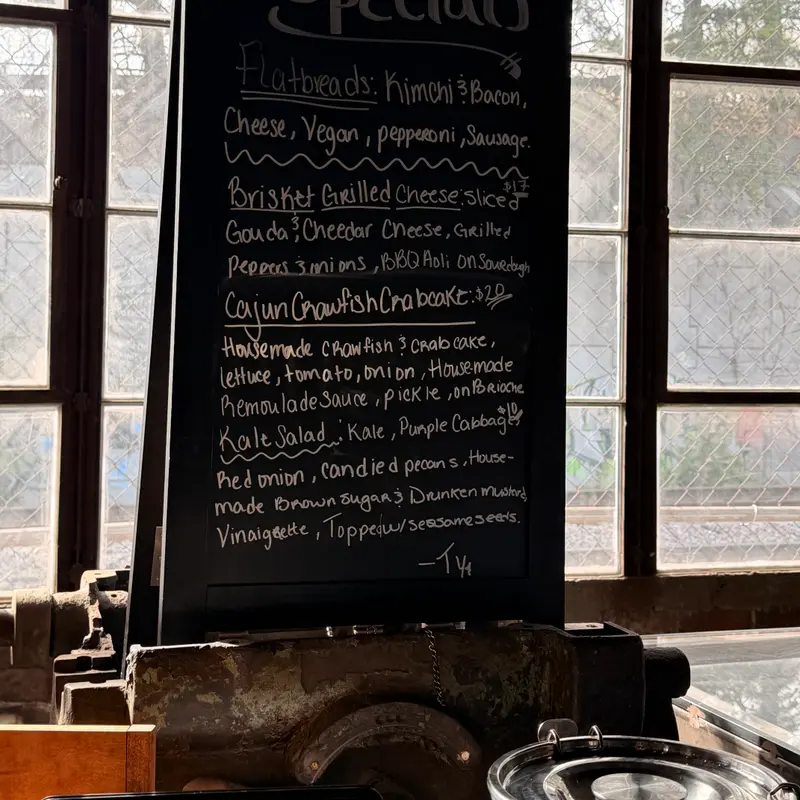 Specials
Flatbreads: Kimchi & Bacon,
Cheese, Vegan, pepperoni, Sausage.
Brisket Grilled Cheese: sliced $17
Gouda & Cheedar Cheese, Grilled
Peppers & onions, BBQ Aoli on Sourdough
Cajun Crawfish Crabcake: $20
Housemade crawfish & crab cake,
lettuce, tomato, onion, Housemade
Remoulade sauce, pickle, on Brioche
Kale Salad: Kale, Purple Cabbage, $10
Red onion, candied pecans, House-
made Brown sugar & Drunken mustard
Vinaigrette, Topped w/ seasame seeds.